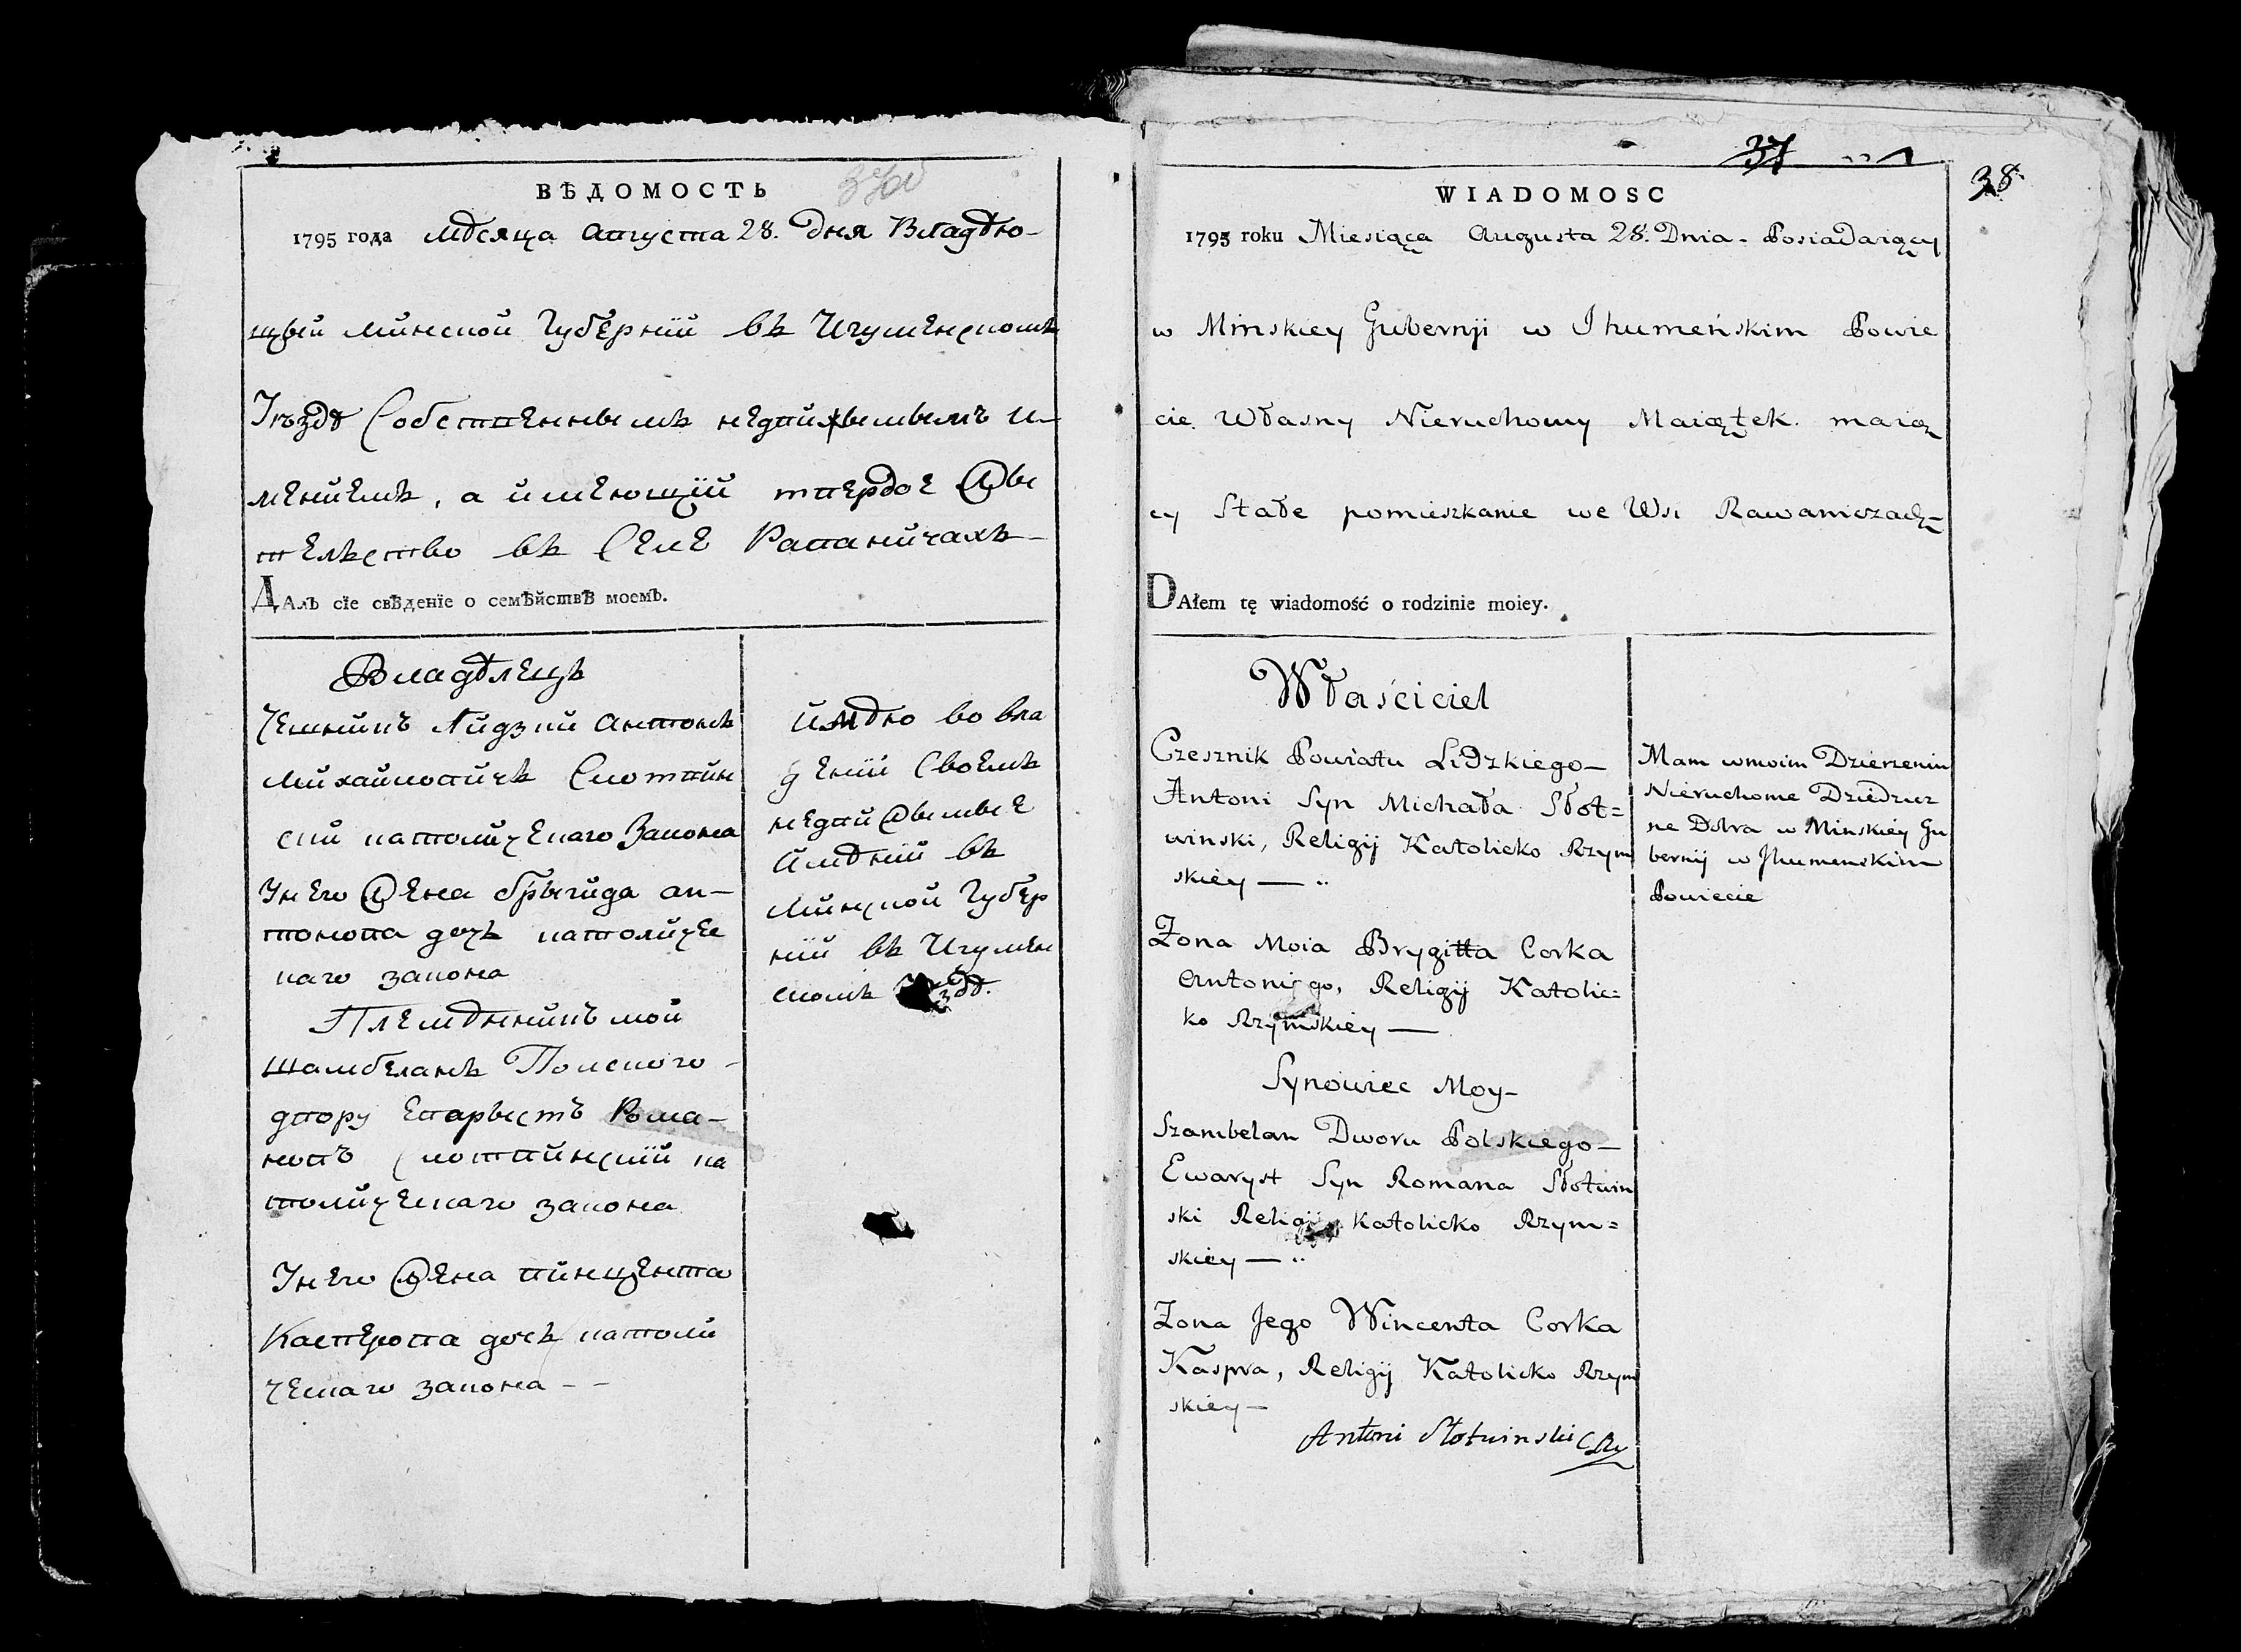 ВѢДОМОСТЬ
1795 года Мѣсяца Августа 28. Дня Владѣю-
щый Минской Губернїи въ Игуменскомъ
Уѣздѣ Собственнымъ недвижымымъ и-
менїемъ, а имеющїй твердое жы
тельство въ Селе Раваничахъ-
ДАлъ сїе свѣденїе о семѣйствѣ моемъ.
Владѣлецъ
Чешникъ Лидзкий Антонъ
Михайловичъ Слотвин
ский католическаго Закона
У него жена Брыгида Ан-
тонова дочь католичес
каго закона
Племѣнникъ мой
Шамбеланъ Полского
двору Еварыстъ Рома-
новъ Слотвинскїй ка
толическаго закона
У него жена Винцента
Касперова дочь католи
ческаго закона - -
Имѣю во вла
денїи Своемъ
недвижымые
Имѣнїи въ
Минской Губер
нїи въ Игумен
скомъ
37
38
WIADOMOSC
1795 roku Miesiąca Augusta 28. Dnia. Posiadaiący
w Mińskiey Gubernji w Jhumeńskim Powie
cie Własny Nieruchomy Maiątek. maią
cy Stałe pomieszkanie we Wsi Rawaniczach-
DAłem tę wiadomość o rodzinie moiey.
Właściciel
Czesznik Powiatu Lidzkiego-
Antoni Syn Michała Słot=
winski, Religij Katolicko Rzym
skiey — ..
Żona Moia Brygitta Corka
Antoniego, Religij Katolic=
ko Rzymskiey —
Synowiec Moy-
Szambelan Dworu Polskiego-
Ewaryst Syn Romana Słotwin
ski Religij Katolicko Rzym=
skiey — ..
Zona Jego Wincenta Corka
Kaspra, Religij Katolicko Rzym
skiey -
Antoni Słotwinski
Mam wmoim Dzierżeniu
Nieruchome Dziedzicz
ne Dobra w Minskiey Gu
bernij w Jhumenskim
Powiecie